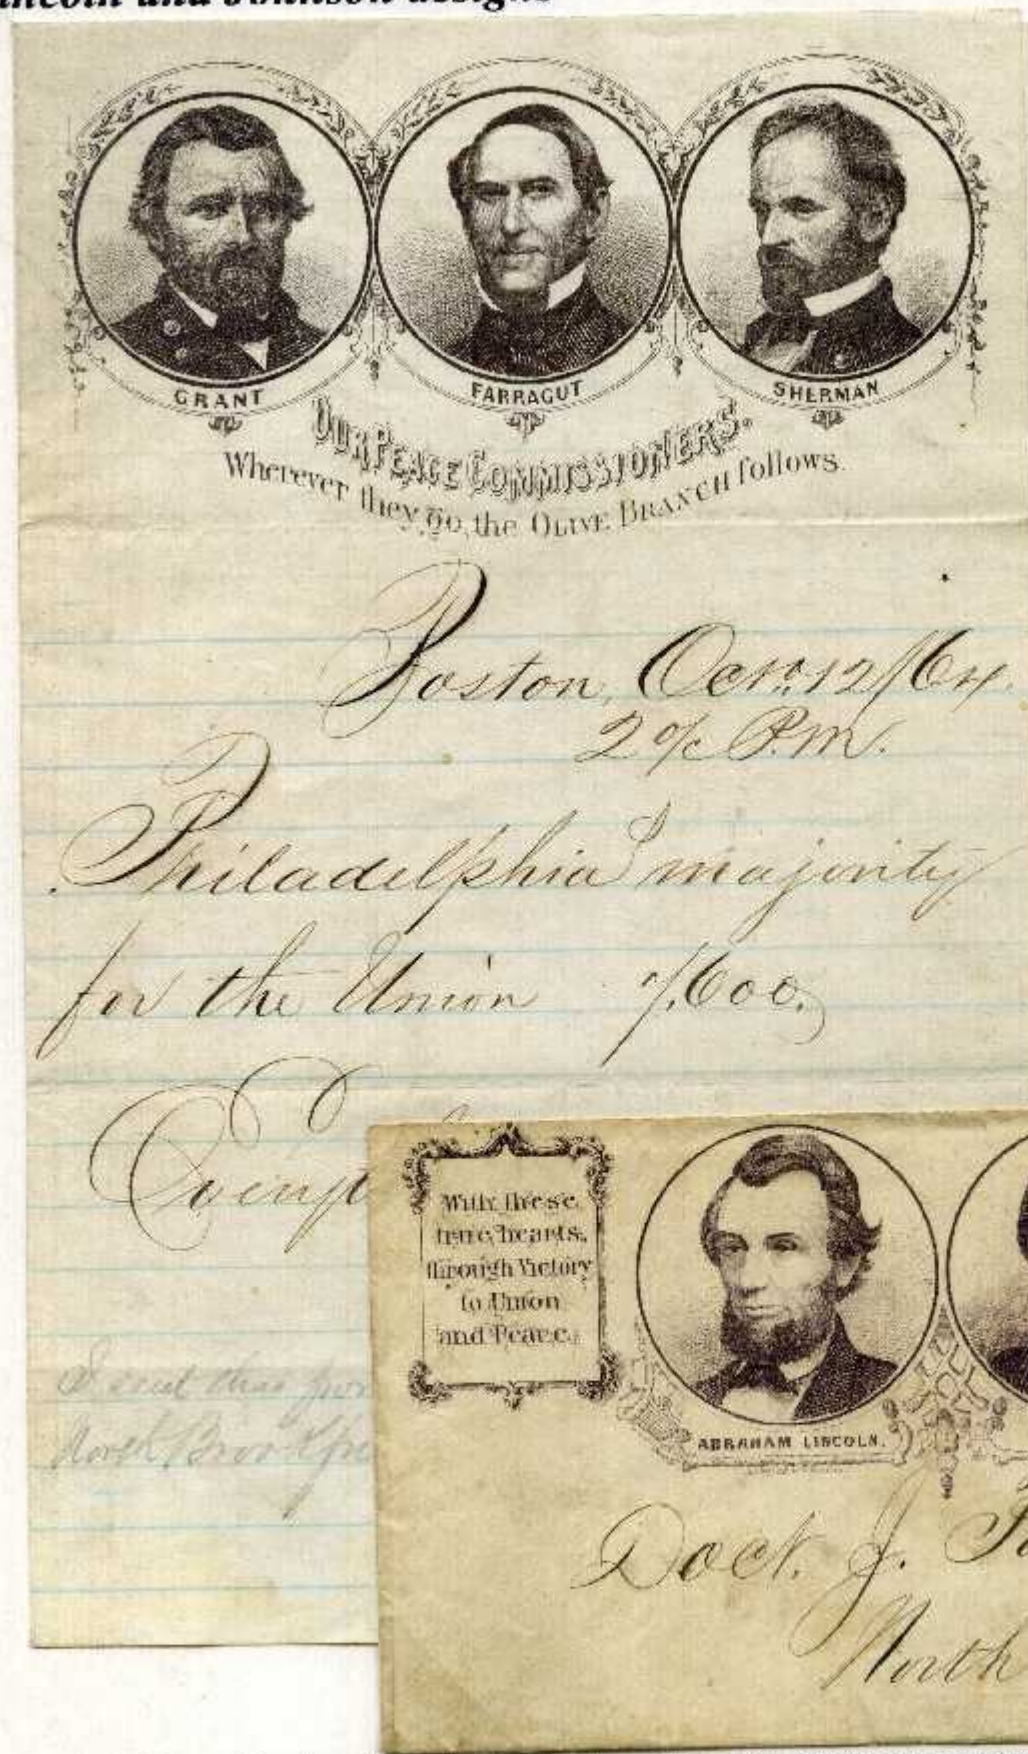 Lincoln and Johnson designs
GRANT
FARRAGUT
SHERMAN
OUR PEACE COMMISSIONERS.
Wherever they go, the OLIVE BRANCH follows.
Boston, Oct. 12/64.
2 o/c P.M.
Philadelphia majority
for the Union 7.600.
With these
true hearts,
through Victory
to Union
and Peace.
ABRAHAM LINCOLN.
Doct. J.
North
I sent this
North